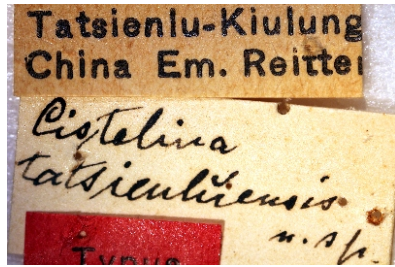 Tatsienlu-Kiulung
China Em. Reitter
Cistelina
tatsienluensis
n. sp.
Typus